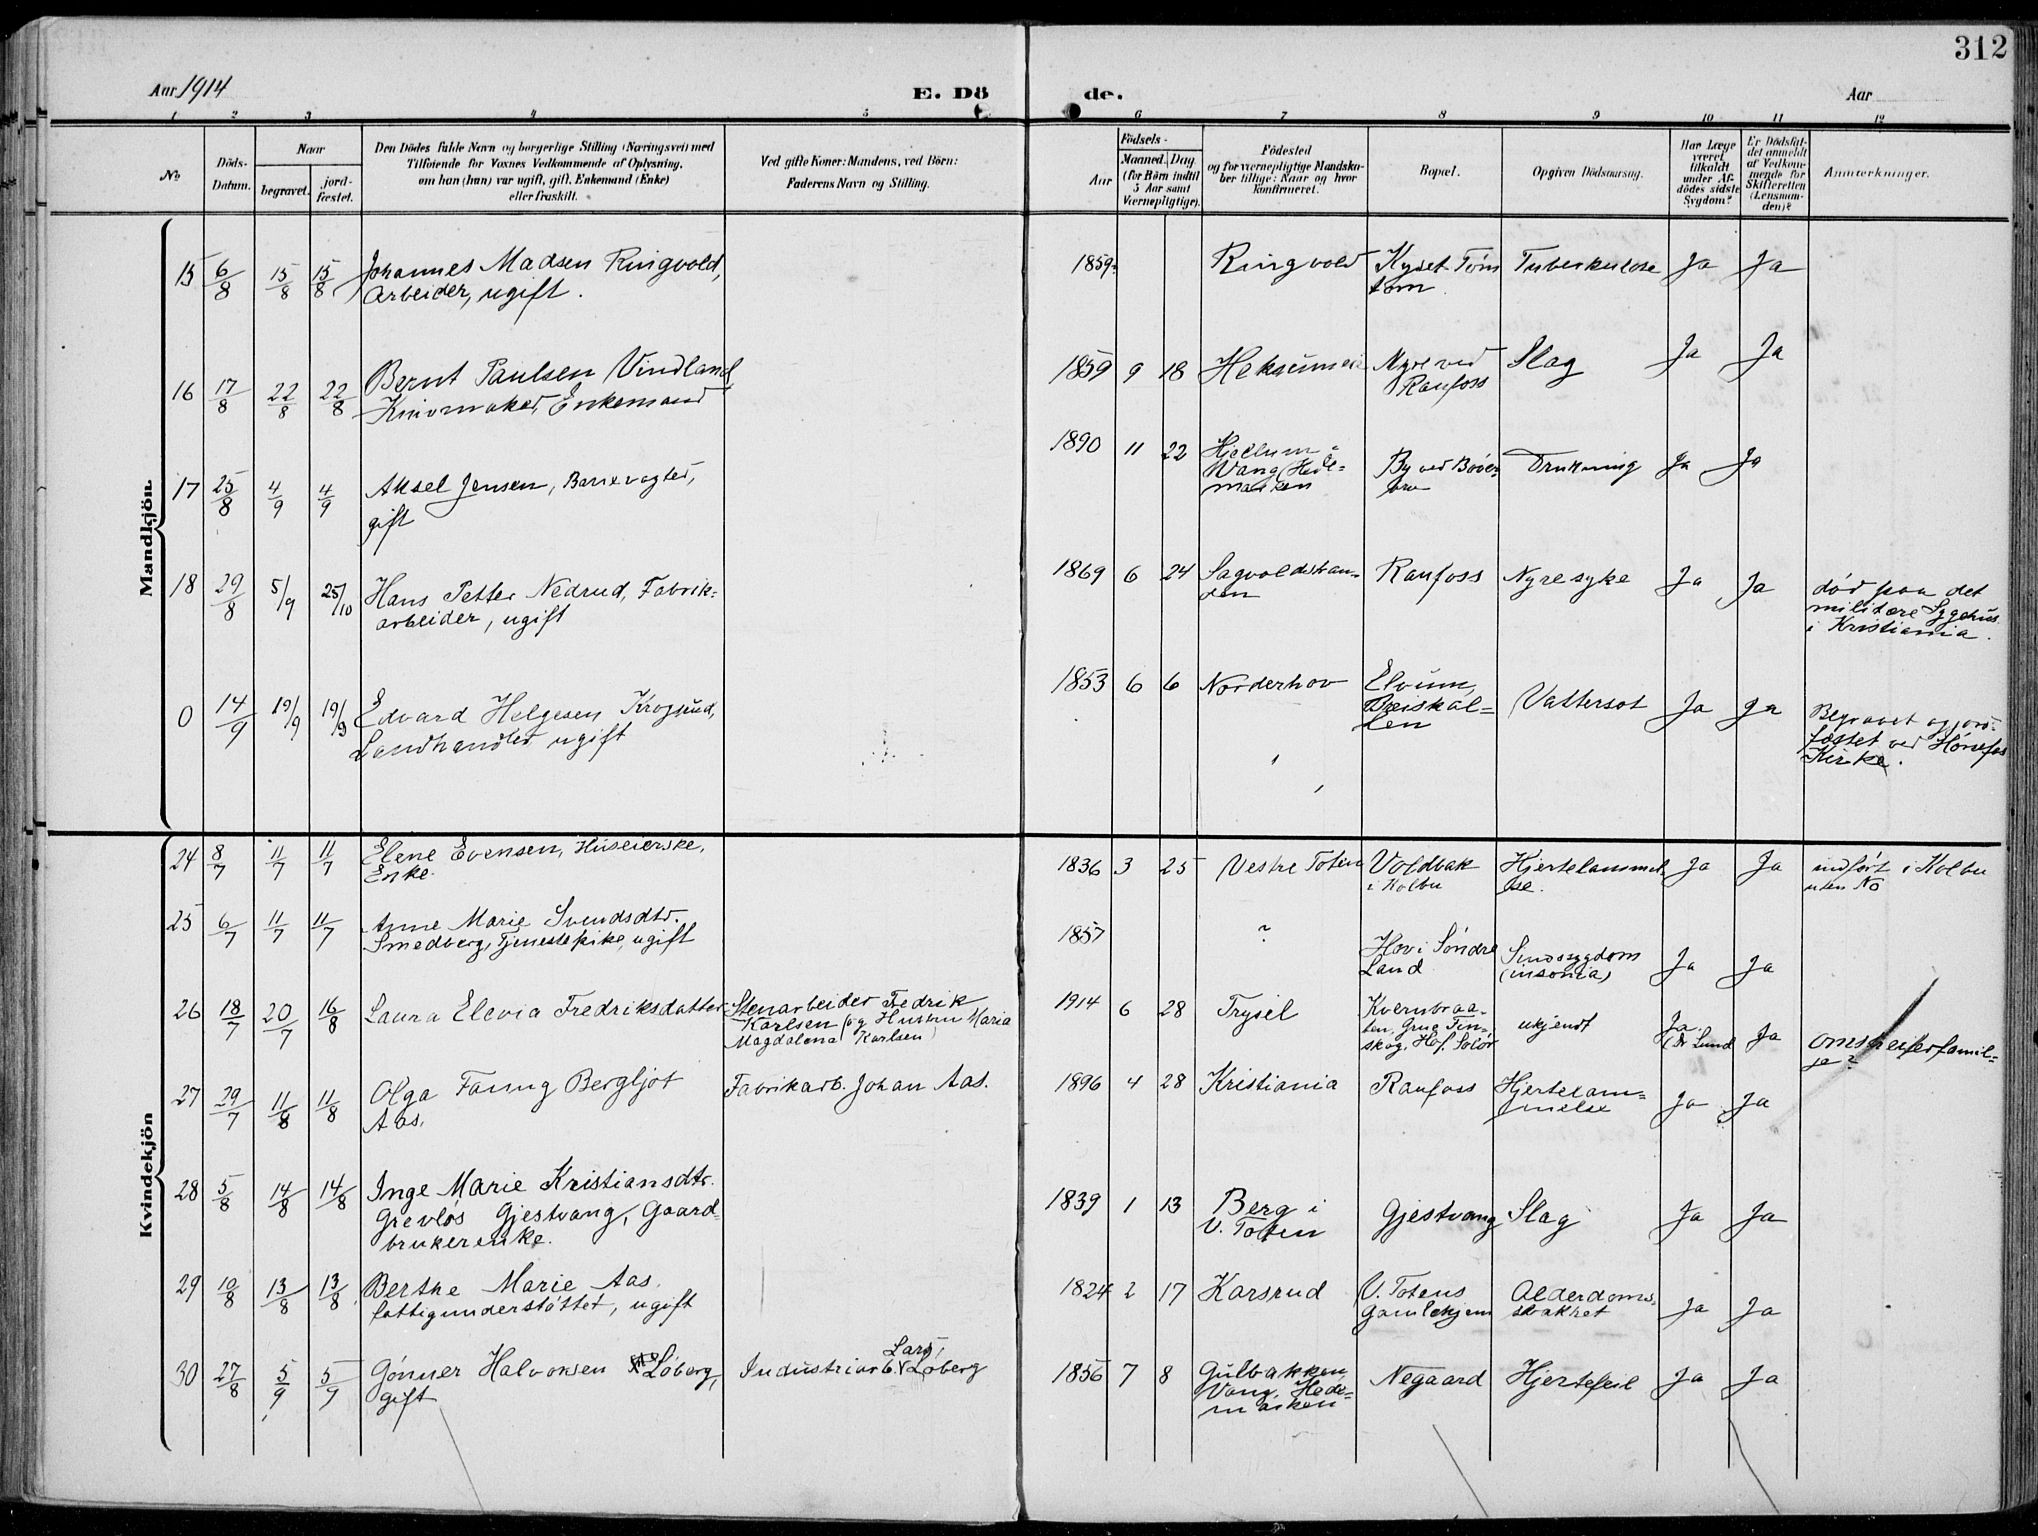 312
Aar 1914
E. Dö
de.
Aar
1 2 3 4 5
6 7 8 9 10 11 12
No
Döds-
Datum.
Naar
begravet.
jord-
fæstet.
Den Dödes fulde Navn og borgerlige Stilling (Næringsvei) med
Tilføiende for Voxnes Vedkommende af Oplysning,
om han (hun) var ugift, gift, Enkemand (Enke)
eller fraskilt.
Ved gifte Koner: Mandens, ved Börn:
Faderens Navn og Stilling.
Födsels-
Aar
Maaned. Dag
(for Börn indtil
5 Aar samt
Værnepligtige).
Födested
og for værnepligtige Mandska-
ber tillige: Naar og hvor
konfirmeret.
Bopæl.
Opgiven Dödsaarsag.
Har Læge
været
tilkaldt
under Af-
dödes sidste
Sygdom?
Er Dödsfal-
det anmeldt
af Vedkom-
mende for
Skifteretten
(Lensman-
den)?
Anmærkninger.
Mandkjön.
15 6/8 15/8 15/8 Johannes Madsen Ringvold,
Arbeider, ugift.
1859 Ringvold Tuberkulose Ja Ja
16 17/8 22/8 22/8 Bernt Paulsen Vindland
Knivmaker, Enkemand
1859 9 18 Nyre ved
Raufoss
Slag Ja Ja
17 25/8 4/9 4/9 Aksel Jensen, Banevogter,
gift
1890 11 22 Hjellum i
Vang Hede-
marken
By ved
Drukning Ja Ja
18 29/8 5/9 25/10 Hans Petter Nedrud, Fabrik-
arbeider, ugift
1869 6 24 Raufoss Nyresyke Ja Ja
död paa det
militære Sygehus
i Kristiania.
0 14/9 19/9 19/9 Edvard Helgesen Krogsrud,
Landhandler, ugift
1853 6 6 Norderhov Elvum,
Vattersot Ja Ja
Begravet og jord-
fæstet ved Hönefos
Kirke.
Kvindekjön
24 8/7 11/7 11/7 Elene Evensen, Huseierske,
Enke.
1836 3 25 Vestre Toten Voldbak
i Kolbu
Hjertelammel-
se.
Ja Ja
indfört i Kolbu
uten No
25 6/7 11/7 11/7 Anne Marie Svendsdtr.
Smedberg, Tjenestepike, ugift
1857 ? Hov i Söndre
Land
Sindssygdom
(insonia)
Ja Ja
26 18/7 20/7 16/8 Laura Elevia Fredriksdatter
Stenarbeider Fredrik
Karlsen (og Hustru Maria
Magdalena Karlsen)
1914 6 28 Trysil Kvernbraa-
ten, Grue Fin-
skog, Hof, Solör
ukjendt
Ja.
(Dr Lund
Ja
omstreiferfamil-
je?
27 29/7 11/8 11/8 Olga Fanny Bergljot
Aas.
Fabrikarb. Johan Aas.
1896 4 28 Kristiania Raufoss Hjertelam-
melse
Ja Ja
28 5/8 14/8 14/8 Inge Marie Kristiansdtr.
Grevlös Gjestvang, Gaard-
brukerenke.
1839 1 13 Berg i
V. Toten
Gjestvang Slag Ja Ja
29 10/8 13/8 13/8 Berthe Marie Aas.
fattigunderstöttet, ugift
1824 2 17 Karsrud V. Totens
Gamlehjem
Alderdoms-
svakhet
Ja Ja
30 27/8 5/9 5/9 Gönner Halvorsen Löberg,
gift
Lars,
Industriarb. Löberg
1856 7 8 Gulbakken
Vang, Hede-
marken
Negaard Hjertefeil Ja Ja